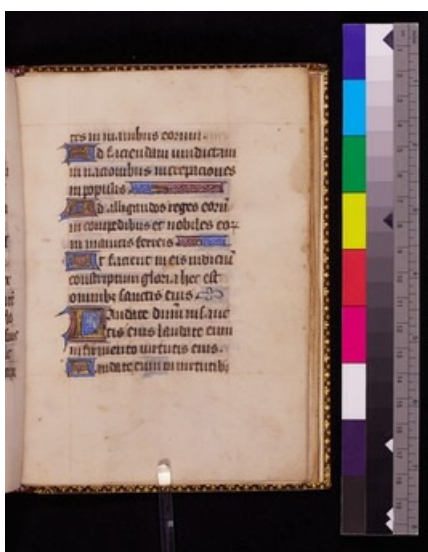 tes in manibus eorum.
Ad faciendam vindictam
in nacionibus increpaciones
in populis
Ad alligandos reges eorū
in compedibus et nobiles eoꝝ
in manicis ferreis
Ut faciant in eis iudiciū
conscriptum gloria hec est
omnibȝ sanctis eius
Laudate dn̄m in sanc
tis eius laudate eum
in firmamento virtutis eius.
Laudate eum in virtutibȝ